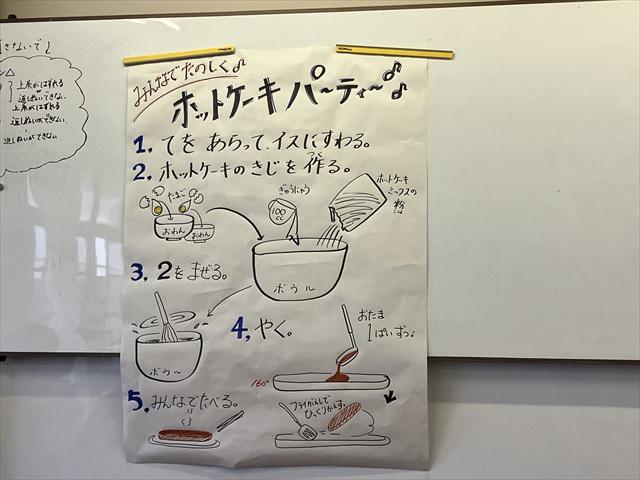 みんなでたのしく♪
ホットケーキパ～ティ～♪♪
1. てをあらって、イスにすわる。
2. ホットケーキのきじを作る。
つく
たまご
おわん
おわん
ぎゅうにゅう
100cc
ホットケーキ
ミックスの
粉
こな
ボウル
3. 2をまぜる。
ボウル
4. やく。
おたま
1ぱいずつ
160°
フライがえしで
ひっくりかえす。
5. みんなでたべる。
上糸がはずれる
返しぬいできない。
上糸がはずれる
返しぬいができない。
返しぬいができない